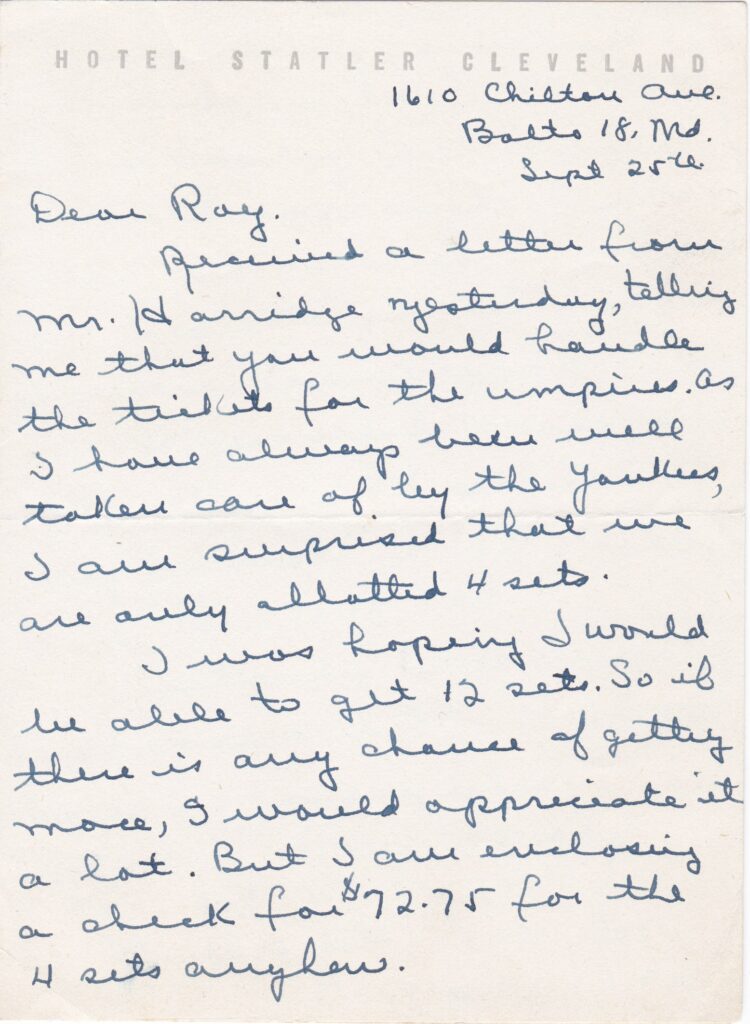 HOTEL STATLER CLEVELAND
1610 Chilton Ave.
Balto 18, Md.
Sept 25th.
Dear Roy.
Received a letter from
Mr. Harridge yesterday, telling
me that you would handle
the tickets for the umpires. As
I have always been well
taken care of by the Yankees,
I am surprised that we
are only allotted 4 sets.
I was hoping I would
be able to get 12 sets. So if
there is any chance of getting
more, I would appreciate it
a lot. But I am enclosing
a check for $72.75 for the
4 sets anyhow.